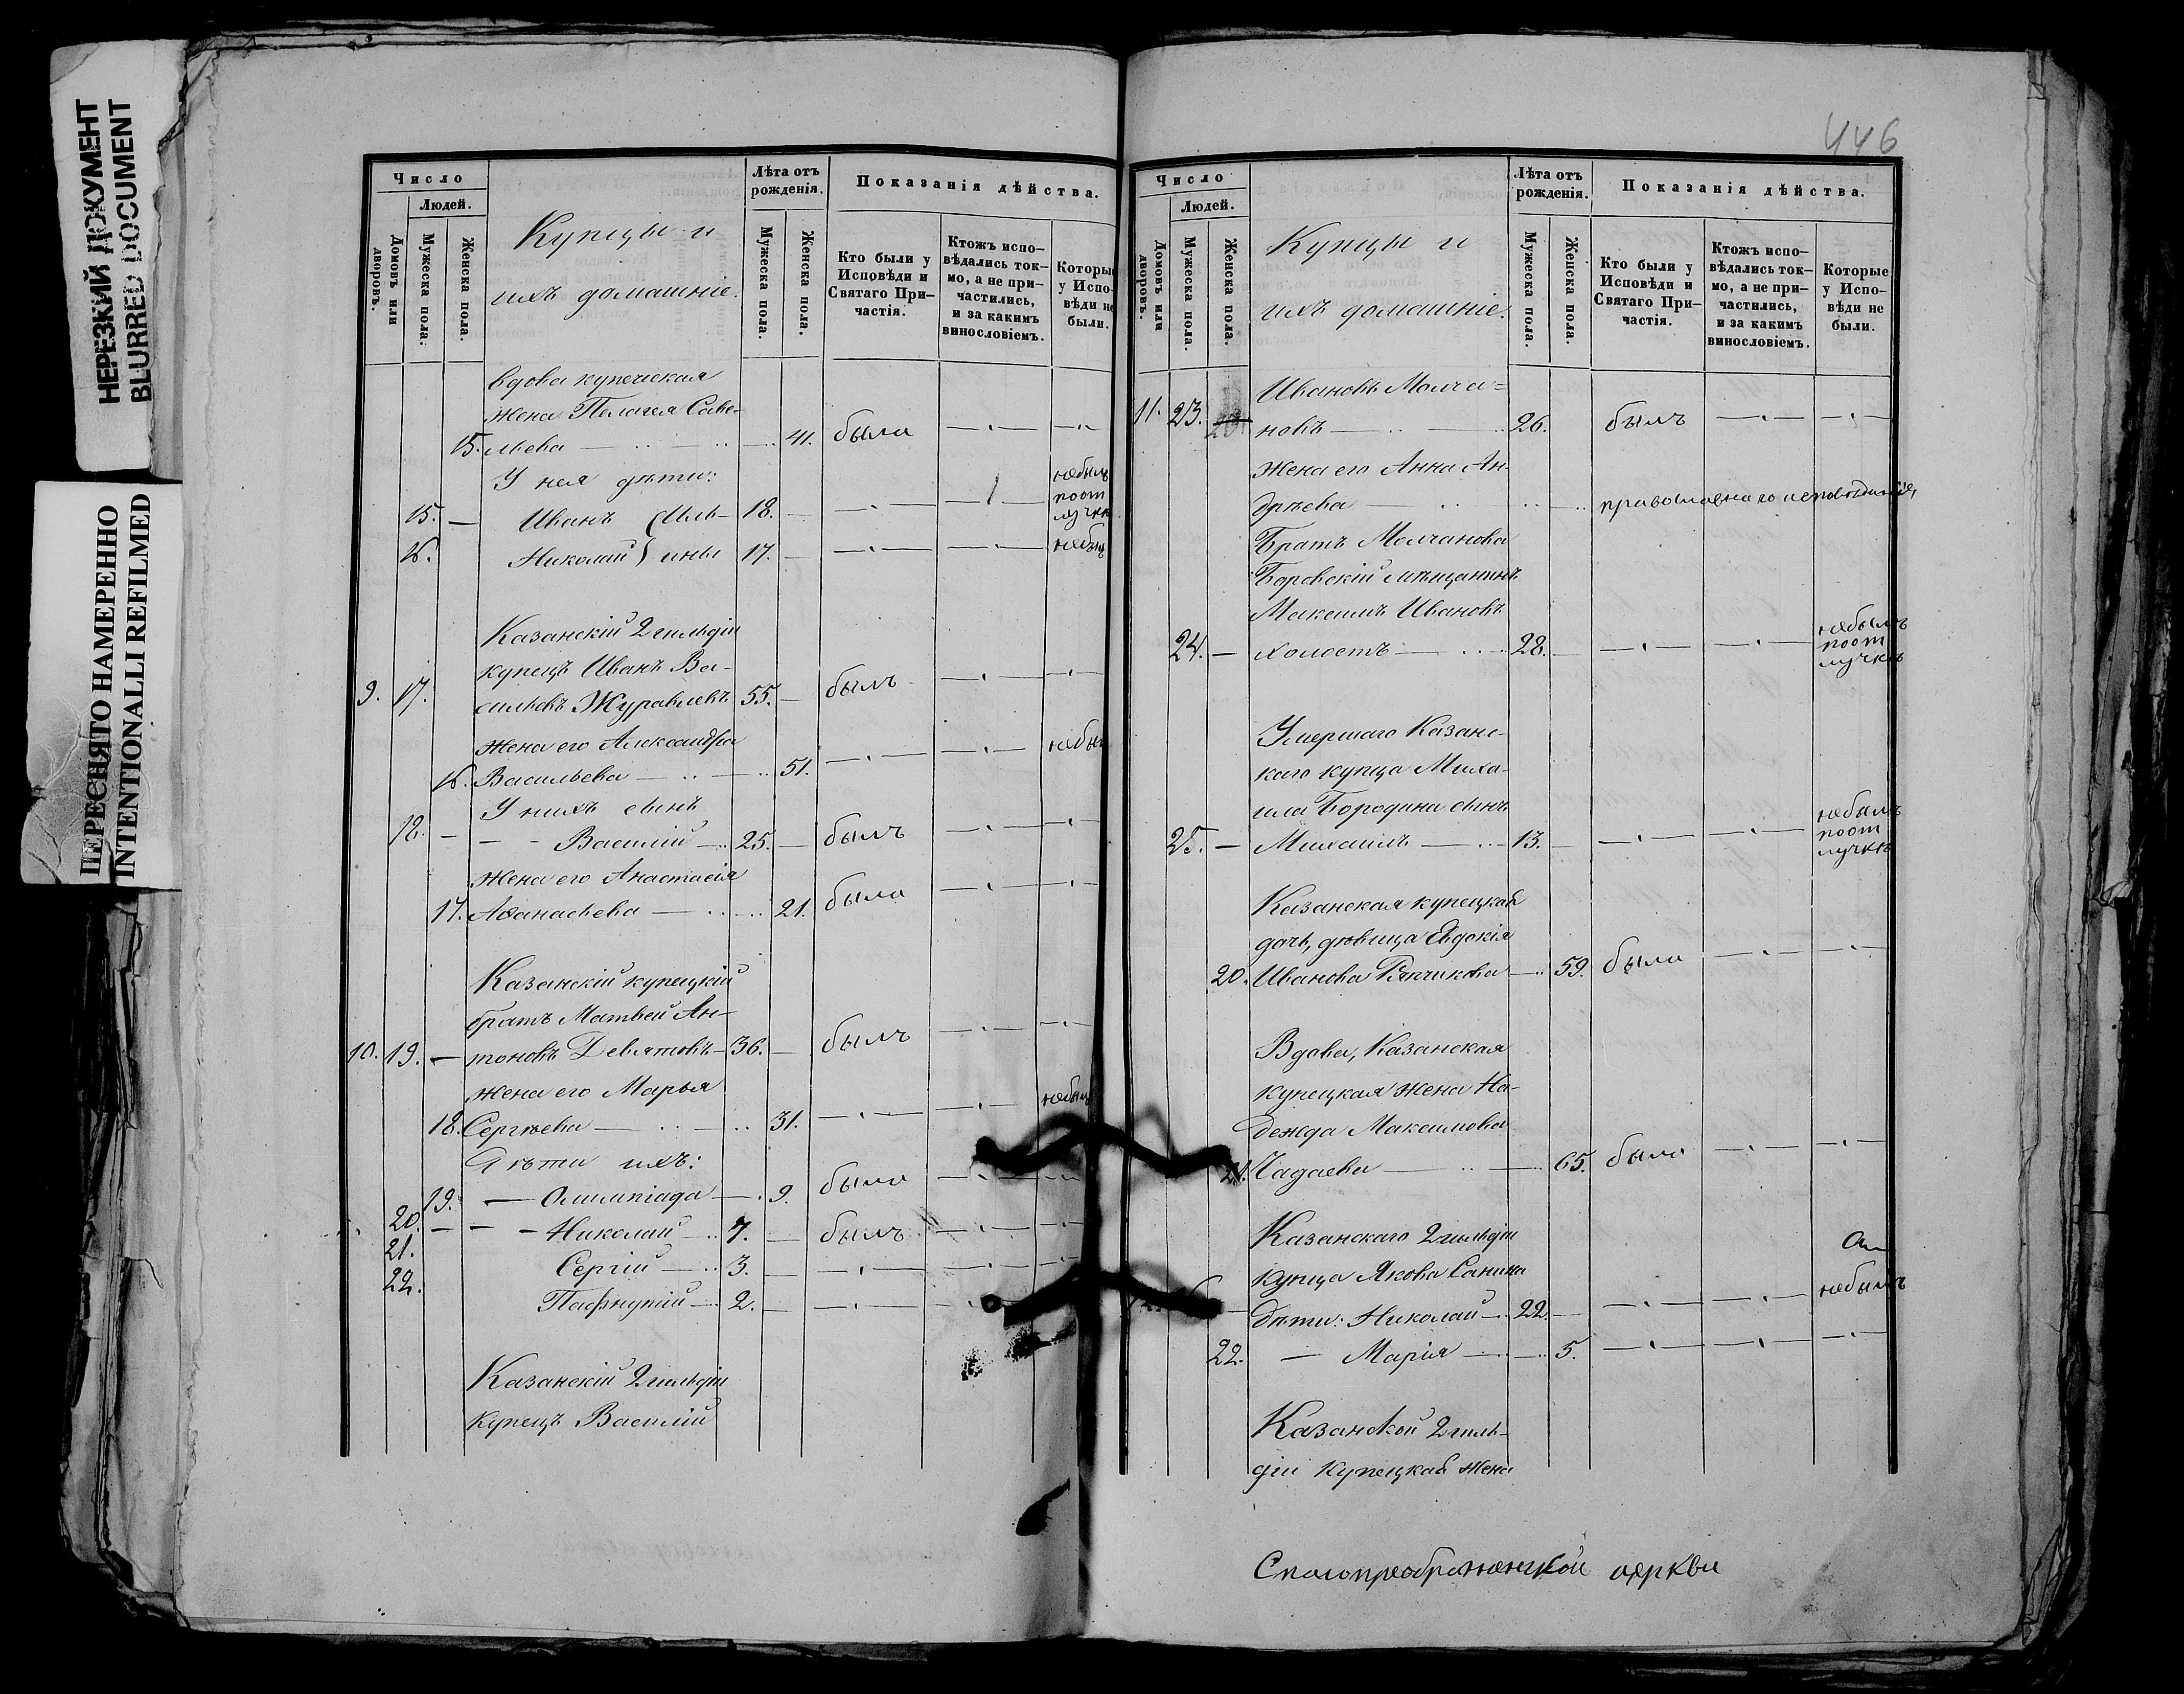 НЕРЕЗКИЙ ДОКУМЕНТ
BLURRED DOCUMENT
ПЕРЕСНЯТО НАМЕРЕННО
INTENTIONALLI REFILMED
Число
Людей.
Домовъ или дворовъ.
Мужеска пола.
Женска пола.
Купцы и
ихъ домашніе.
Лѣта отъ рожденія.
Мужеска пола.
Женска пола.
Показанія дѣйства.
Кто были у Исповѣди и Святаго Причастія.
Ктожъ исповѣдались токмо, а не причастились, и за какимъ винословіемъ.
Которые у Исповѣди не были.
вдова купеческая
жена Пелагея Саве-
15. льева — 41. была
У нея дѣти:
15. — Иванъ (Иль- 18. — небылъ поот лучкѣ
16. Николай) ины 17. — небыл
Казанскій 2 гильдіи
купецъ Иванъ Ва-
9. 17. сильевъ Журавлевъ 55. — былъ
жена его Александра
16. Васильева — 51. небы
У нихъ сынъ
18. — Василій — 25. — былъ
жена его Анастасія
17. Аѳанасьева — 21. была
Казанскій купецкій
братъ Матвей Ан-
10. 19. — тоновъ Девятовъ — 36. — былъ
жена его Марья
18. Сергѣева — 31. небы
Дѣти ихъ:
19. — Олимпіада — 9. была
20. — Николай — 7. — былъ
21. Сергій — 3. —
22. Пафнутій — 2. —
Казанскій 2 гильдіи
купецъ Василій
446
Число
Людей.
Домовъ или дворовъ.
Мужеска пола.
Женска пола.
Купцы и
ихъ домашніе.
Лѣта отъ рожденія.
Мужеска пола.
Женска пола.
Показанія дѣйства.
Кто были у Исповѣди и Святаго Причастія.
Ктожъ исповѣдались токмо, а не причастились, и за какимъ винословіемъ.
Которые у Исповѣди не были.
Ивановъ Молча=
11. 23. новъ — 26. былъ
жена его Анна Ан-
дрѣева — православнаго исповѣданія
Братъ Молчанова
Боровскій мѣщанинъ
Максимъ Ивановъ
24. — холостъ — 28. — небылъ поот лучкѣ
Умершаго Казанс-
каго купца Миха-
ила Бородина сынъ
25. — Михаилъ — 13. — небылъ поот лучкѣ
Казанская купецкая
дочь, дѣвица Евдокія
20. Иванова Рябчикова — 59. была
Вдова, Казанская
купецкая жена На-
дежда Максимова
21. Чадаева — 65. была
Казанскаго 2 гильдіи
купца Якова Санина
дѣти: Николай — 22. — небылъ
22. — Марія — 5.
Казанской 2 гиль-
діи купецкая жена
Спасопреображенской церкви